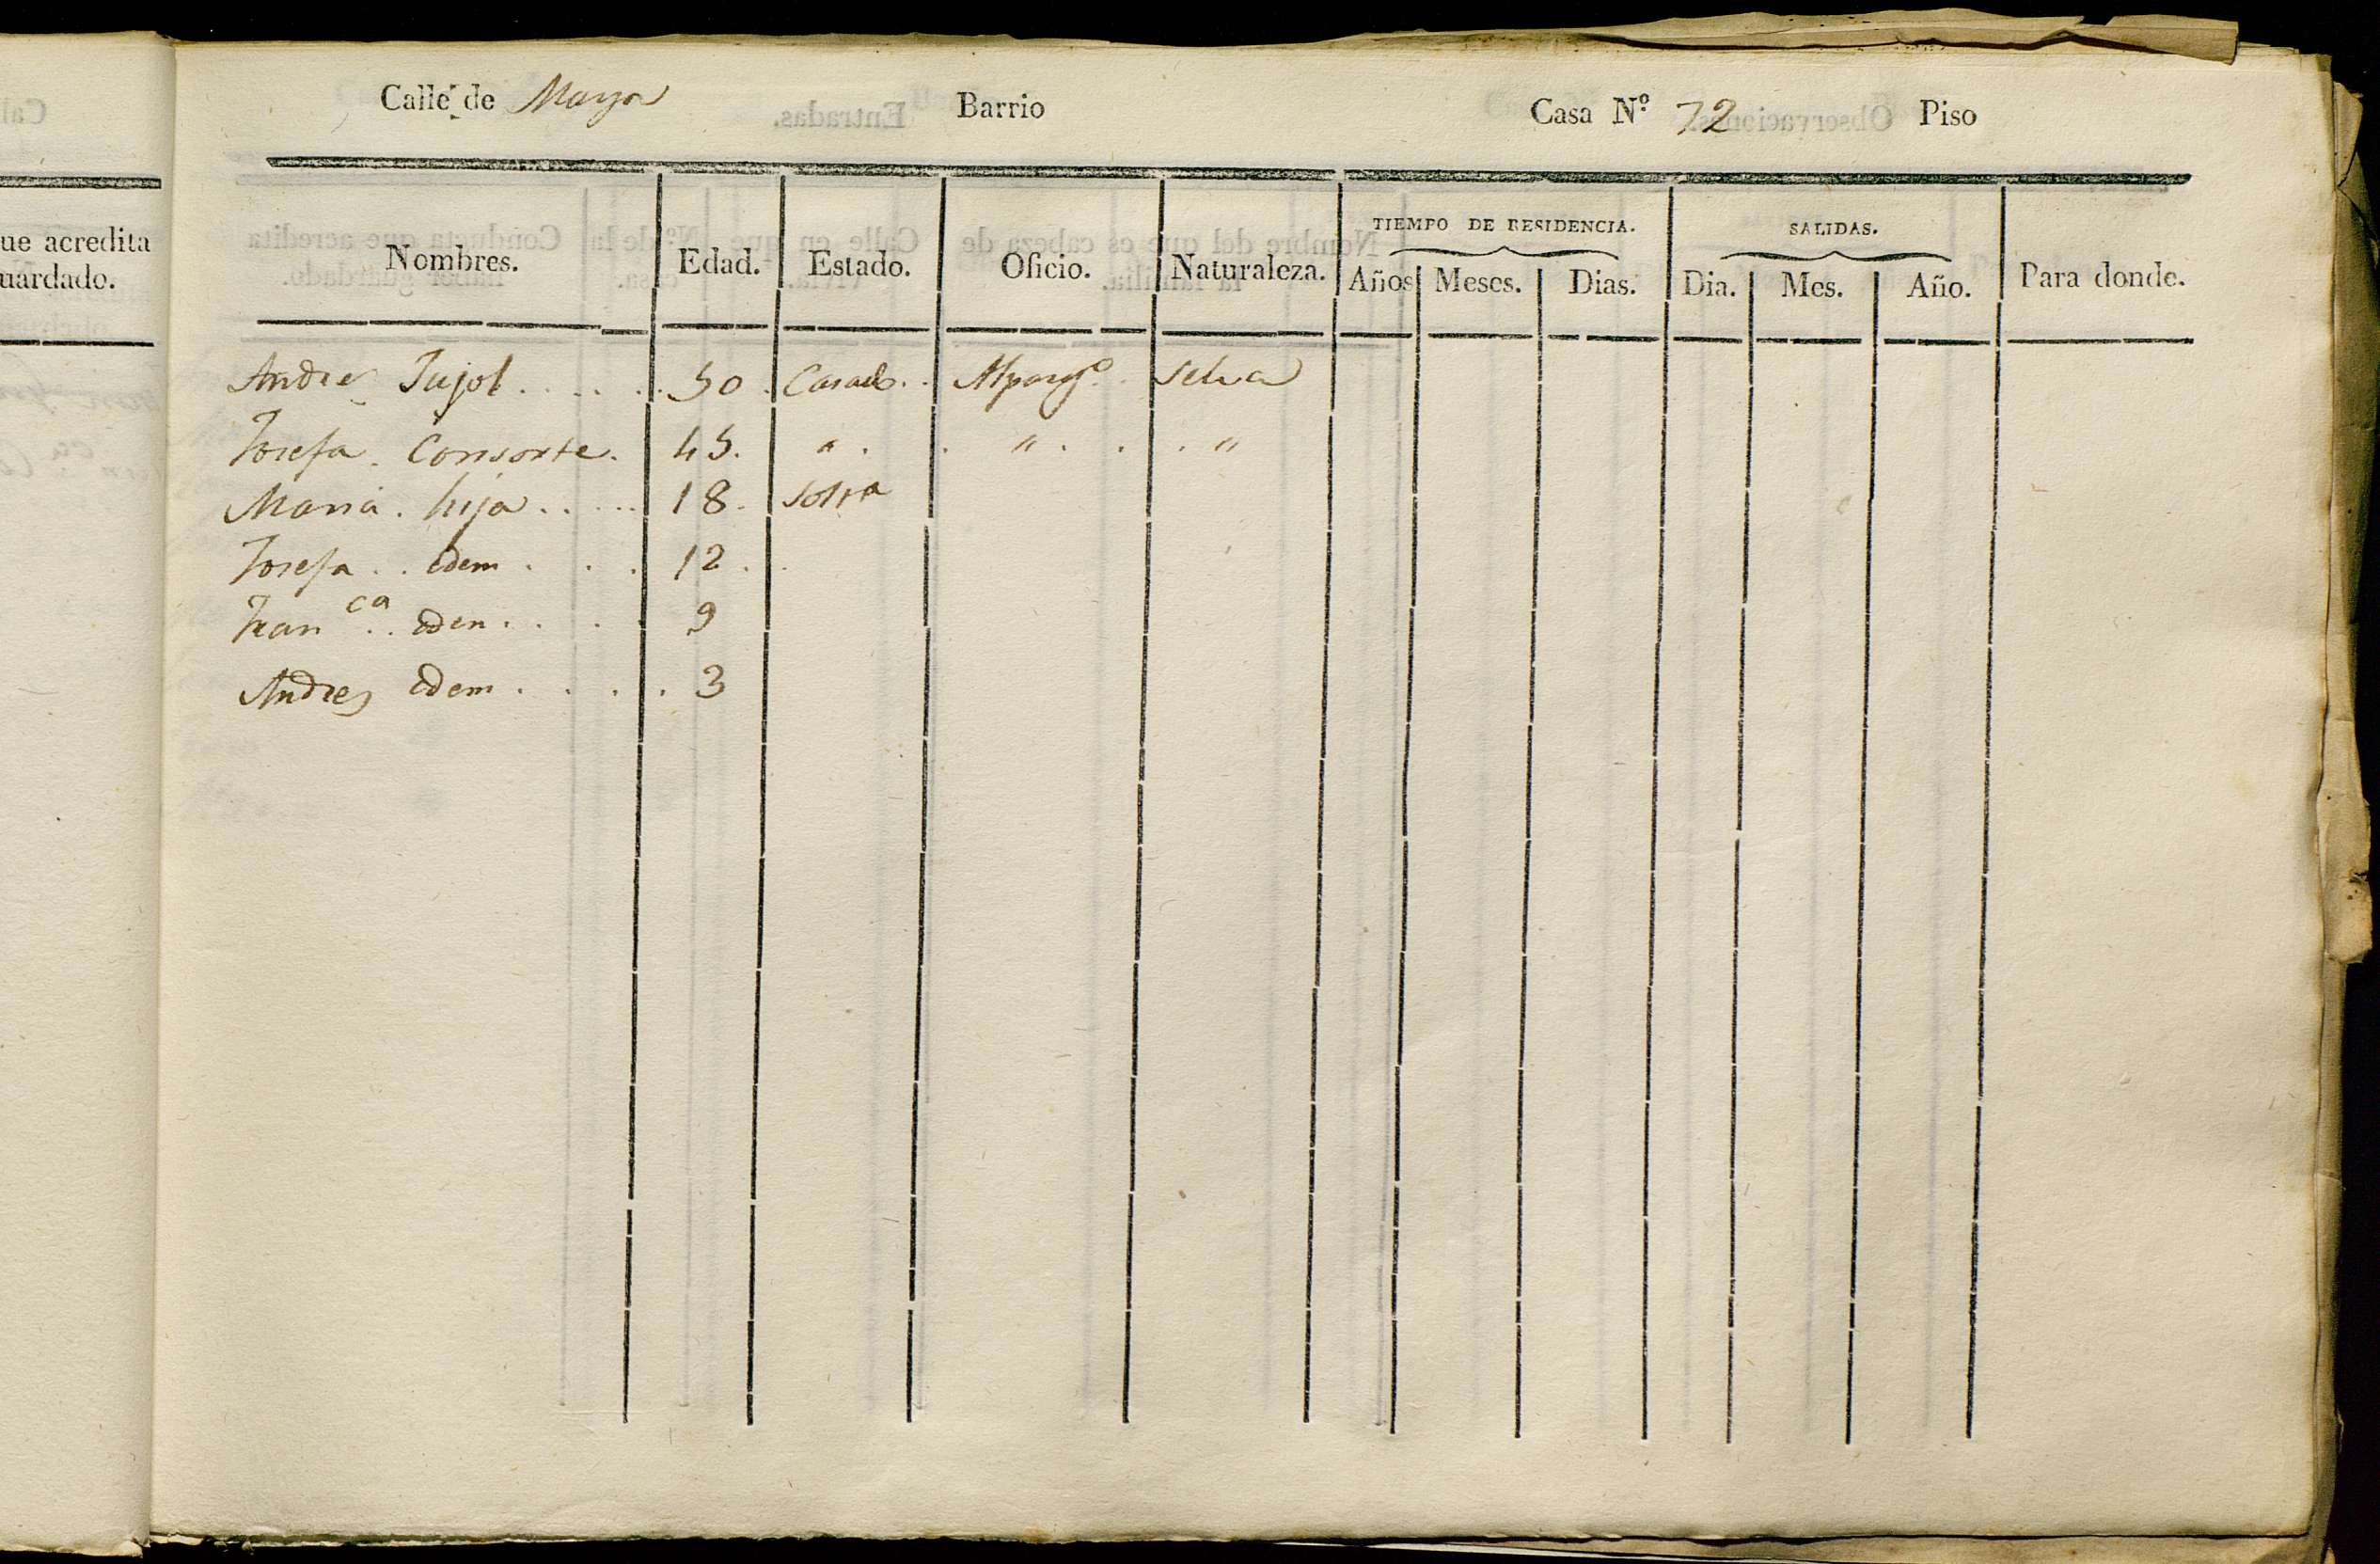 Calle de Mayor Barrio Casa N.º 72 Piso
ue acredita
uardado.
Nombres. Edad. Estado. Oficio. Naturaleza. TIEMPO DE RESIDENCIA. Años Meses. Dias. SALIDAS. Dia. Mes. Año. Para donde.
Andres Pujol . . . . . 50 . Casado . . Alparg.o . Selva
Josefa . Consorte . 45 . " . . " . . . "
Maria . hija . . . . . 18 . Solt.a
Josefa . . Idem . . . 12 . .
Fran.ca . . Idem . . . 9
Andres Idem . . . . 3